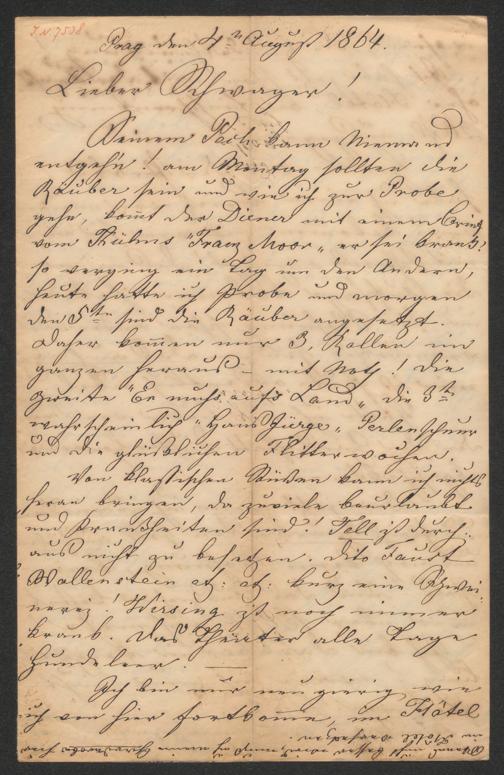 I.N. 7538
Prag den 4ten August 1864.
Lieber Schwager!
Seinem Pech kann Niemand
entgehn! am Montag sollten die
Räuber sein und wie ich zur Probe
gehe, komt der Diener mit einem Brief
vom Kühns "Franz Moor" er sei krank!
so verging ein Tag um den Andern,
heute hatte ich Probe und morgen
den 5ten sind die Räuber angesetzt.
Daher kommen nur 3, Rollen im
ganzen heraus – mit Noth! die
zweite "Er muß aufs Land" die 3te
wahrscheinlich "Hans Jürge" Perlenschnur
und die glücklichen Flitterwochen.
Von klassischen Stücken kann ich nichts
heran bringen, da zuviele beurlaubt
und Krankheiten sind! Tell ist durch-
aus nicht zu besetzen. dito Faust
Wallenstein etc: etc: kurz eine Schwei-
nerei! Wirsing ist noch immer
krank. Das Theater alle Tage
Hundeleer. —
Ich bin nur neugierig, wie
ich von hier fortkomme, im Hôtel